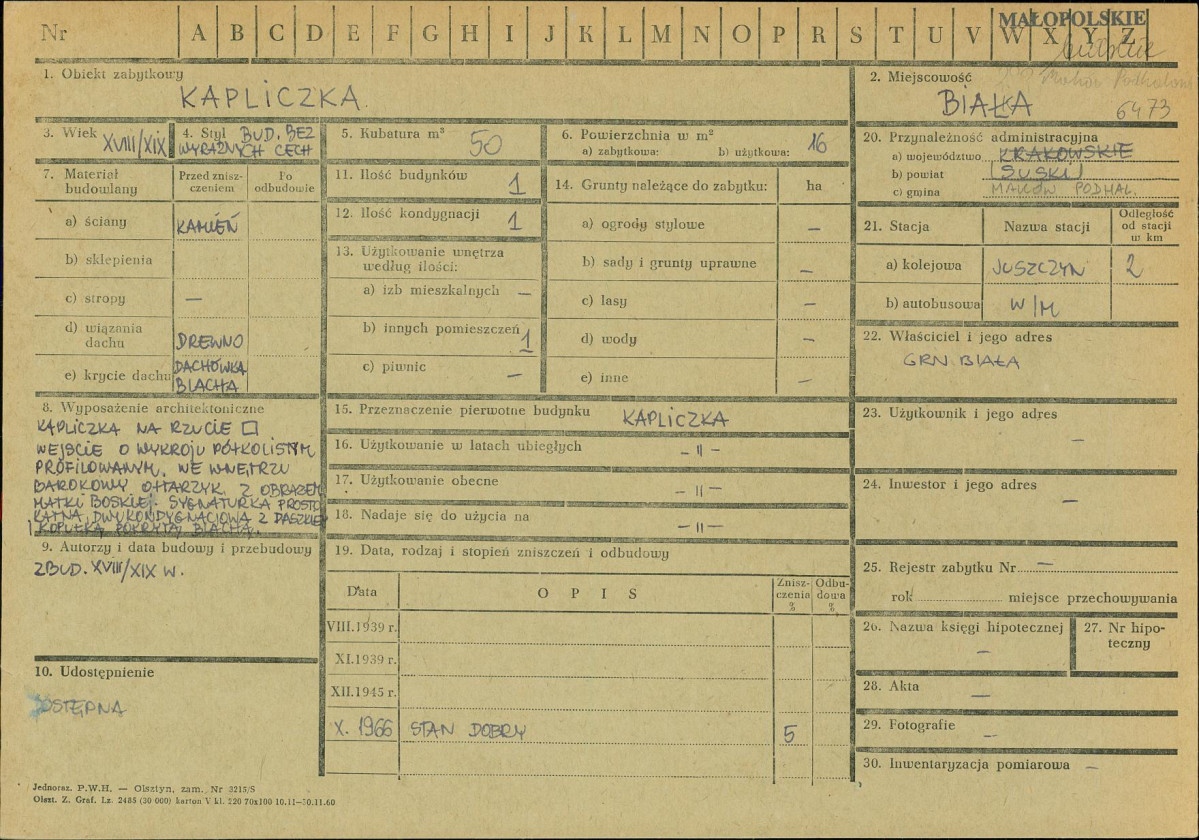 Nr A B C D E F G H I J K L M N O P R S T U V W X Y Z
MAŁOPOLSKIE
1. Obiekt zabytkowy
KAPLICZKA.
2. Miejscowość
BIAŁA
6473
3. Wiek XVIII/XIX
4. Styl BUD. BEZ
WYRAŹNYCH CECH
5. Kubatura m³ 50
6. Powierzchnia w m²
a) zabytkowa: b) użytkowa: 16
20. Przynależność administracyjna
a) województwo KRAKOWSKIE
b) powiat SUSKI
c) gmina MAKÓW PODHAL.
7. Materiał budowlany
Przed zniszczeniem
Po odbudowie
a) ściany KAMIEŃ
b) sklepienia
c) stropy —
d) wiązania dachu DREWNO
e) krycie dachu DACHÓWKA
BLACHA
11. Ilość budynków 1
12. Ilość kondygnacji 1
13. Użytkowanie wnętrza
według ilości:
a) izb mieszkalnych —
b) innych pomieszczeń 1
c) piwnic —
14. Grunty należące do zabytku: ha
a) ogrody stylowe —
b) sady i grunty uprawne —
c) lasy —
d) wody —
e) inne —
21. Stacja
Nazwa stacji
Odległość
od stacji
w km
a) kolejowa JUSZCZYN 2
b) autobusowa W/M
22. Właściciel i jego adres
GRN BIAŁA
8. Wyposażenie architektoniczne
KAPLICZKA NA RZUCIE □
WEJŚCIE O WYKROJU PÓŁKOLISTYM
PROFILOWANYM. WE WNĘTRZU
BAROKOWY OŁTARZYK Z OBRAZEM
MATKI BOSKIEJ. SYGNATURKA PROSTO
KĄTNA, DWUKONDYGNACIOWA Z DASZKIEM
I KOPUŁKĄ POKRYTĄ BLACHĄ.
15. Przeznaczenie pierwotne budynku KAPLICZKA
16. Użytkowanie w latach ubiegłych — " —
17. Użytkowanie obecne — " —
18. Nadaje się do użycia na — " —
23. Użytkownik i jego adres
—
24. Inwestor i jego adres
—
9. Autorzy i data budowy i przebudowy
ZBUD. XVIII/XIX W.
19. Data, rodzaj i stopień zniszczeń i odbudowy
Data O P I S Zniszczenia % Odbudowa %
VIII.1939 r.
XI.1939 r.
XII.1945 r.
X. 1966 STAN DOBRY 5
25. Rejestr zabytku Nr —
rok miejsce przechowywania
26. Nazwa księgi hipotecznej
—
27. Nr hipoteczny
28. Akta —
29. Fotografie —
30. Inwentaryzacja pomiarowa —
10. Udostępnienie
DOSTĘPNA
Jednoraz. P.W.H. — Olsztyn, zam. Nr 3215/S
Olszt. Z. Graf. Lz. 2485 (30 000) karton V kl. 220 70x100 10.11—30.11.60